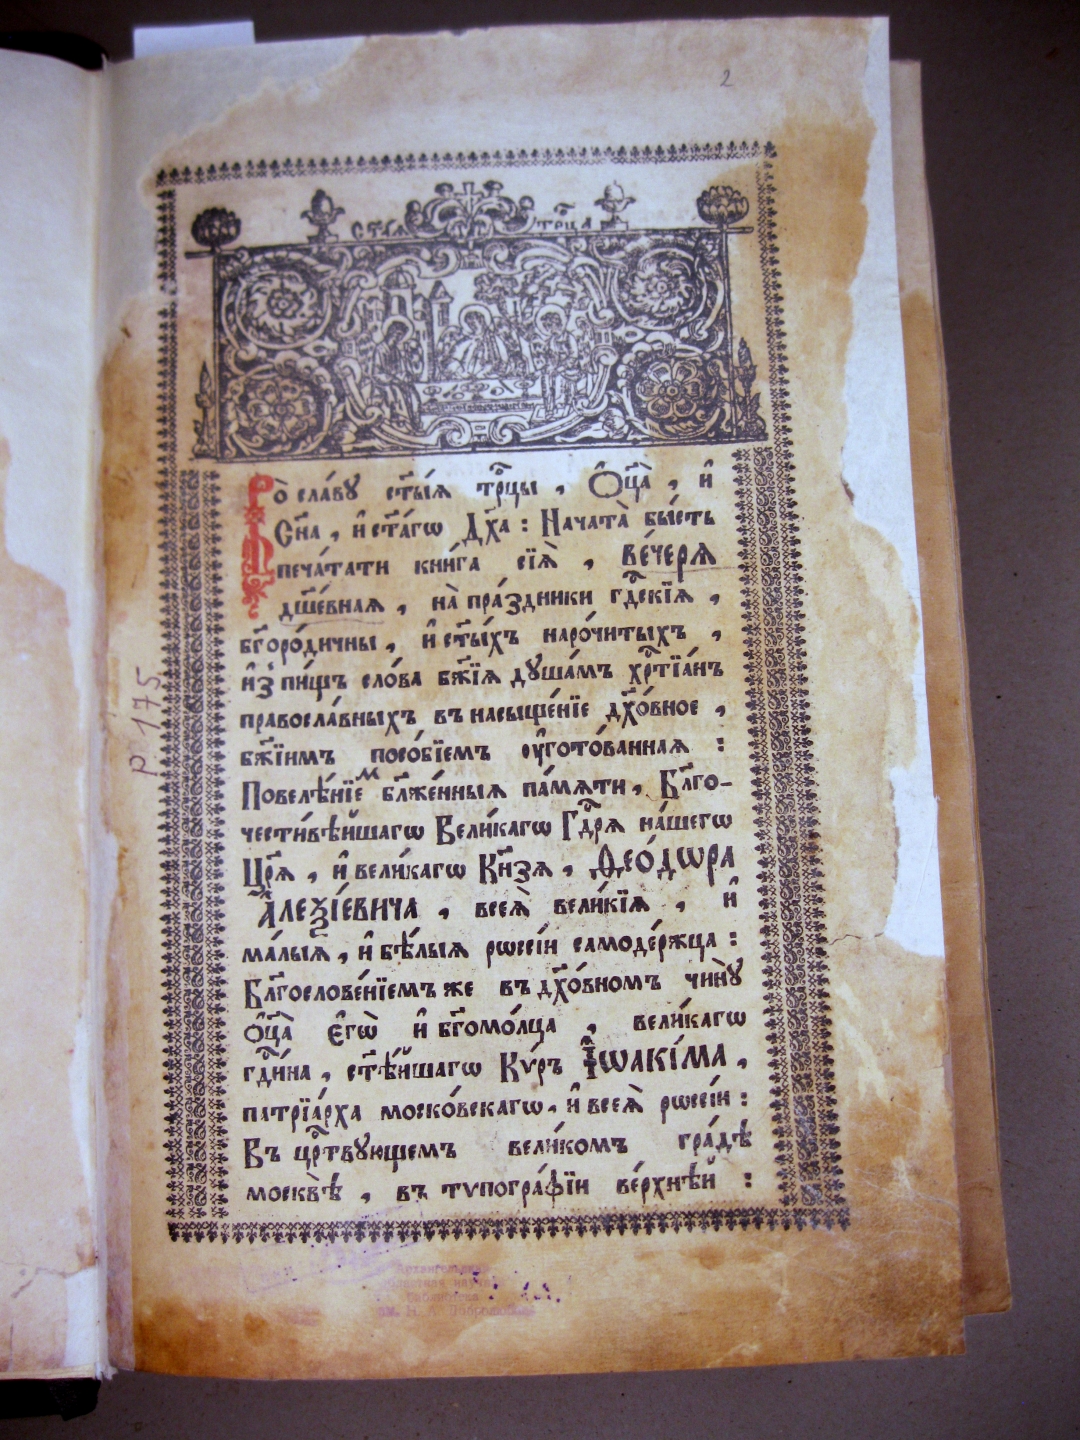 2
ст҃ая тр҃ца
Во̀ сла́ву ст҃ы́я тр҃цы , Ѻ҆ц҃а̀ , и҆
Сн҃а , и҆ ст҃а́гѡ Дх҃а : Нача́та бы́сть
печа́тати кни́га сїѧ̀ , ве́черѧ
дш҃е́внаѧ , на̀ пра́здники гдⷭ҇кїѧ ,
бг҃оро́дичны , и҆ ст҃ы́хъ наро́читыхъ ,
и҆з̾ пи́щъ сло́ва бж҃їѧ душа́мъ хрⷭ҇тїа́нъ
правосла́вныхъ въ насыще́нїе дх҃о́вное ,
бж҃їимъ посо́бїемъ оу҆гото́ваннаѧ :
Повелѣ́нїеⷨ бл҃же́нныѧ па́мѧти , Бл҃го-
чести́вѣйшагѡ Вели́кагѡ Гдⷭ҇рѧ на́шегѡ
Цр҃ѧ , и҆ вели́кагѡ Кн҃зѧ , Ѳео́дѡра
А҆леѯі́евича , всеѧ̀ вели́кїѧ , и҆
ма́лыѧ , и҆ бѣ́лыѧ рѡссі́и самоде́ржца :
Бл҃гослове́нїемъ же въ дх҃о́вномъ чи́ну
Ѻ҆ц҃а̀ є҆гѡ̀ и҆ бг҃омо́лца , вели́кагѡ
гдⷭ҇и́на , ст҃ѣ́йшагѡ Кѵ́ръ І҆ѡакі́ма ,
патрїа́рха моско́вскагѡ , и҆ всеѧ̀ рѡссі́и :
Въ црⷭ҇твующемъ вели́комъ гра́дѣ
москвѣ̀ , въ тѵпогра́фїи ве́рхнѣй :
Р 175